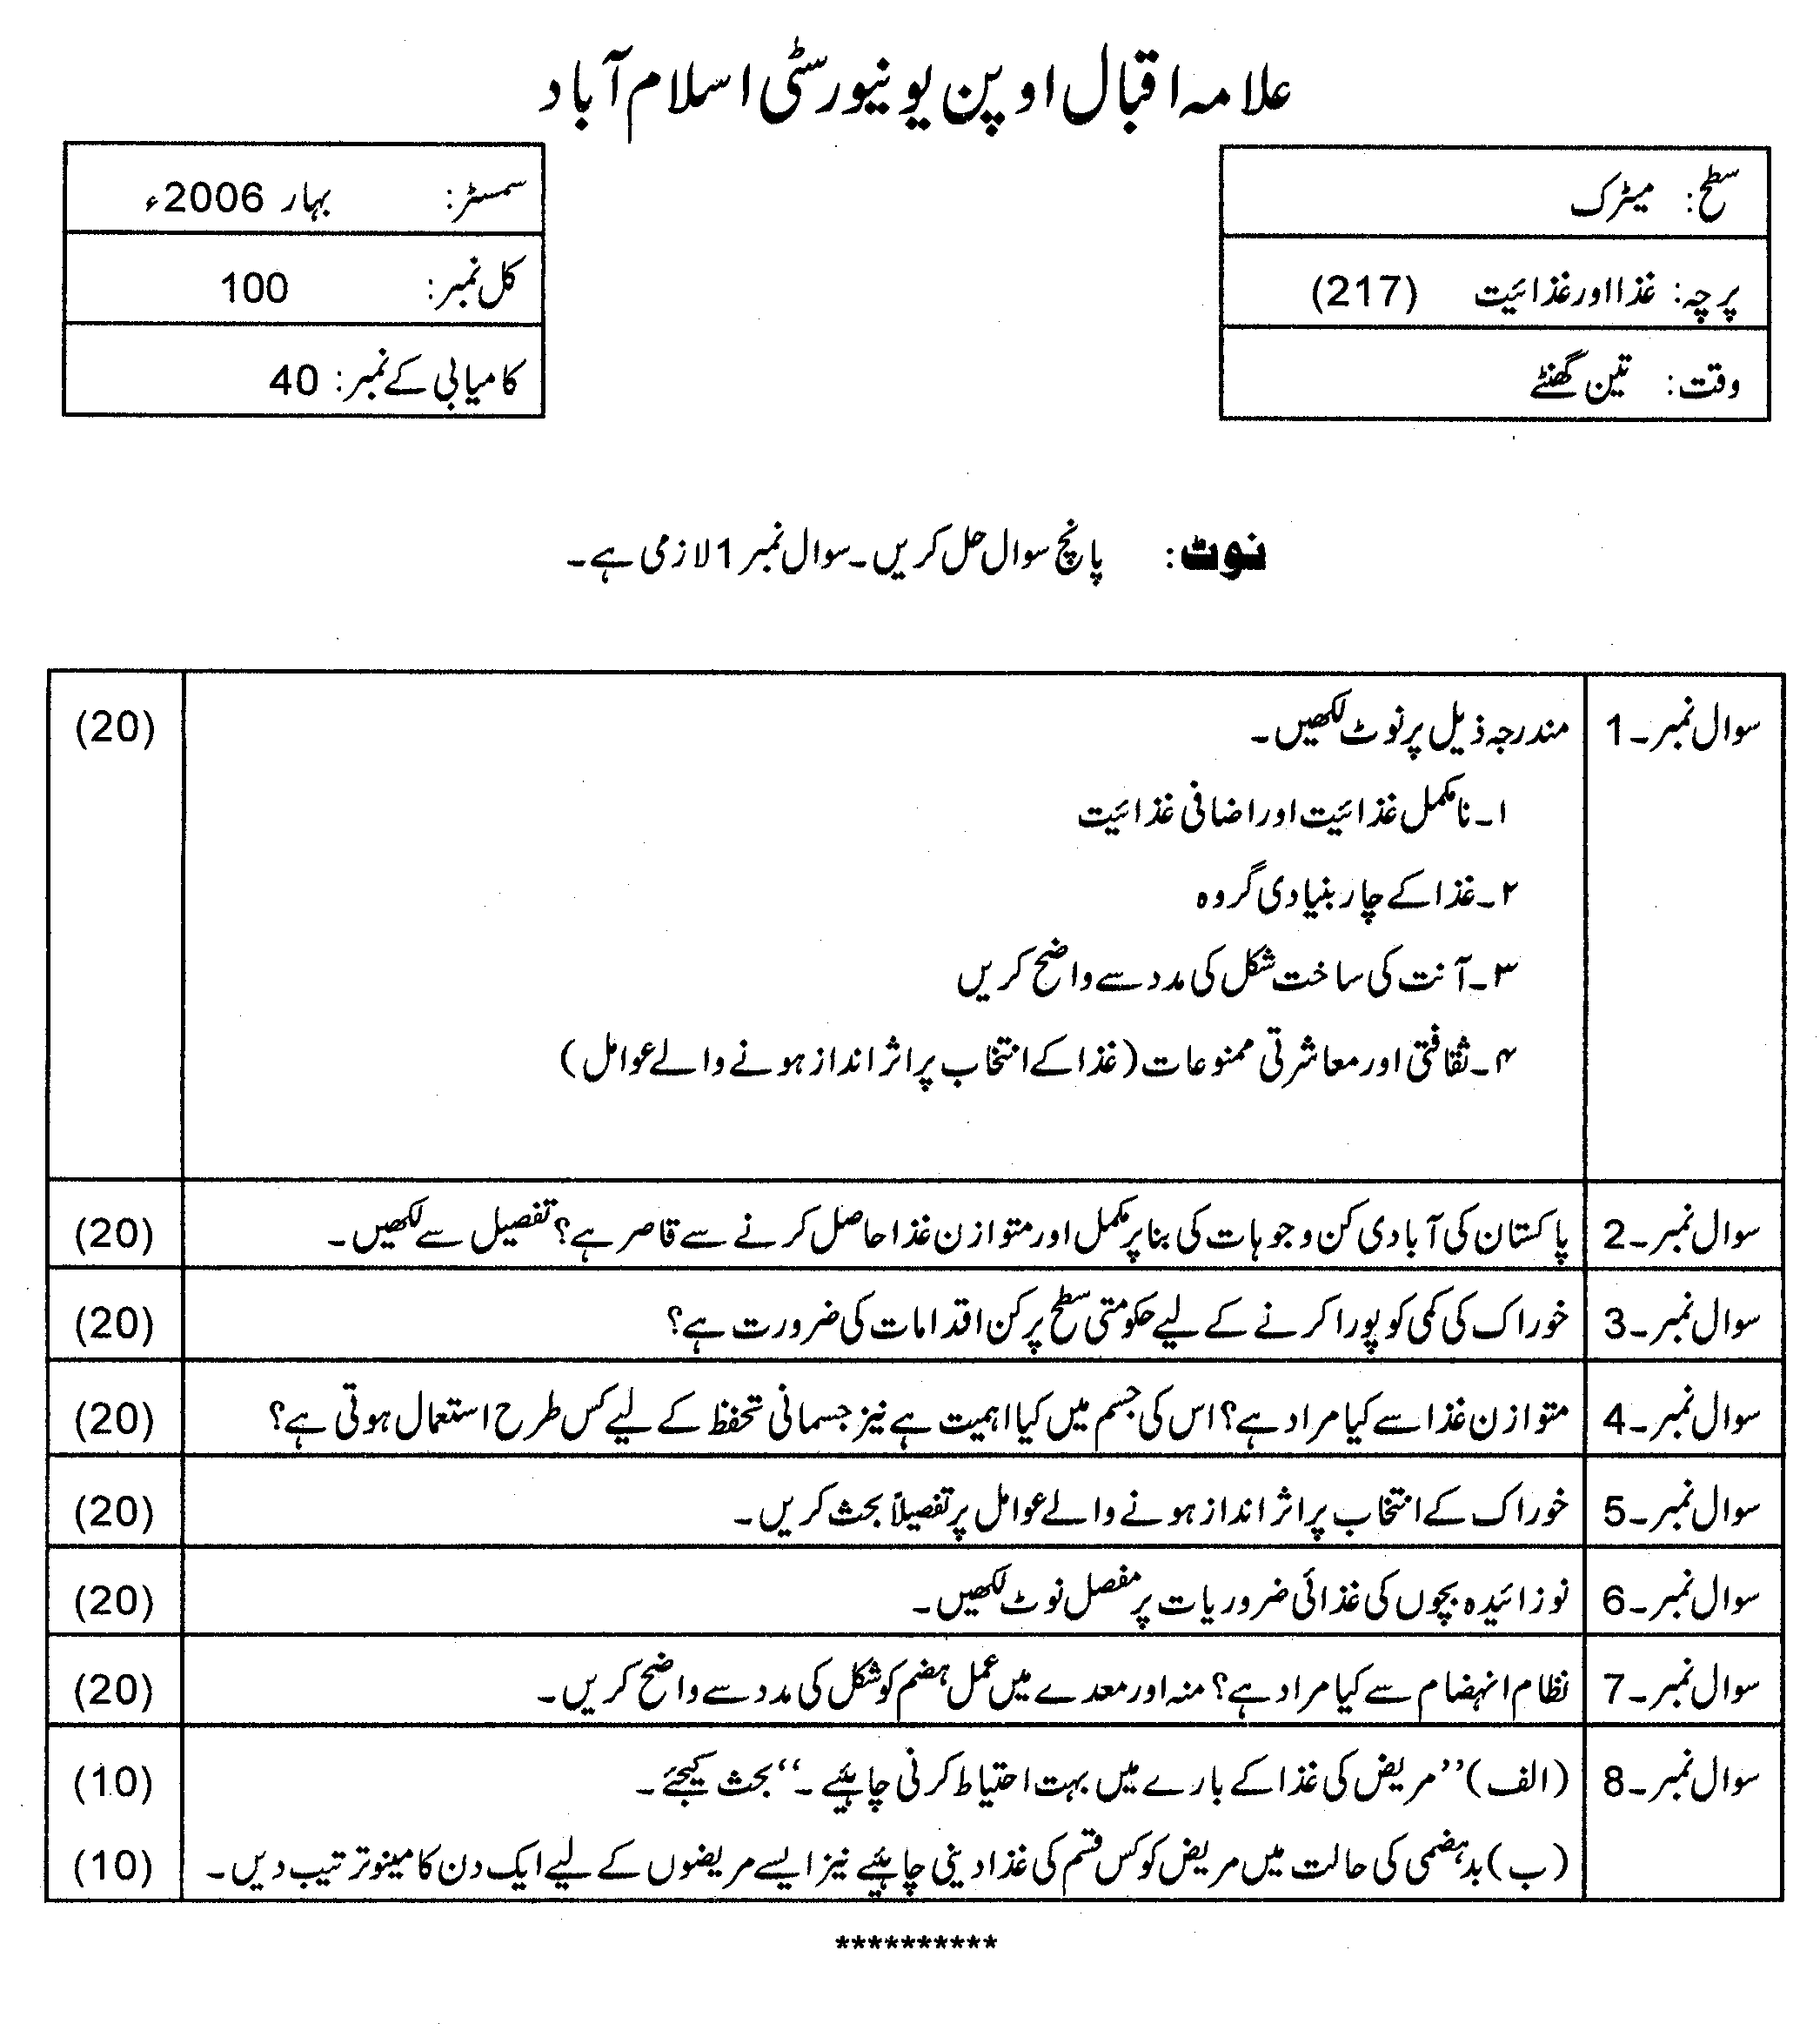 علامہ اقبال اوپن یونیورسٹی اسلام آباد
سطح: میٹرک
سمسٹر: بہار 2006ء
پرچہ: غذا اور غذائیت (217)
کل نمبر: 100
وقت: تین گھنٹے
کامیابی کے نمبر: 40
نوٹ: پانچ سوال حل کریں۔ سوال نمبر 1 لازمی ہے۔
سوال نمبر۔1 مندرجہ ذیل پر نوٹ لکھیں۔ (20)
۱۔ نامکمل غذائیت اور اضافی غذائیت
۲۔ غذا کے چار بنیادی گروہ
۳۔ آنت کی ساخت شکل کی مدد سے واضح کریں
۴۔ ثقافتی اور معاشرتی ممنوعات (غذا کے انتخاب پر اثر انداز ہونے والے عوامل)
سوال نمبر۔2 پاکستان کی آبادی کن وجوہات کی بنا پر مکمل اور متوازن غذا حاصل کرنے سے قاصر ہے؟ تفصیل سے لکھیں۔ (20)
سوال نمبر۔3 خوراک کی کمی کو پورا کرنے کے لیے حکومتی سطح پر کن اقدامات کی ضرورت ہے؟ (20)
سوال نمبر۔4 متوازن غذا سے کیا مراد ہے؟ اس کی جسم میں کیا اہمیت ہے نیز جسمانی تحفظ کے لیے کس طرح استعمال ہوتی ہے؟ (20)
سوال نمبر۔5 خوراک کے انتخاب پر اثر انداز ہونے والے عوامل پر تفصیلاً بحث کریں۔ (20)
سوال نمبر۔6 نوزائیدہ بچوں کی غذائی ضروریات پر مفصل نوٹ لکھیں۔ (20)
سوال نمبر۔7 نظام انہضام سے کیا مراد ہے؟ منہ اور معدے میں عمل ہضم کو شکل کی مدد سے واضح کریں۔ (20)
سوال نمبر۔8 (الف) ’’مریض کی غذا کے بارے میں بہت احتیاط کرنی چاہئیے۔‘‘ بحث کیجئے۔ (10)
(ب) بدہضمی کی حالت میں مریض کو کس قسم کی غذا دینی چاہئیے نیز ایسے مریضوں کے لیے ایک دن کا مینو ترتیب دیں۔ (10)
**********